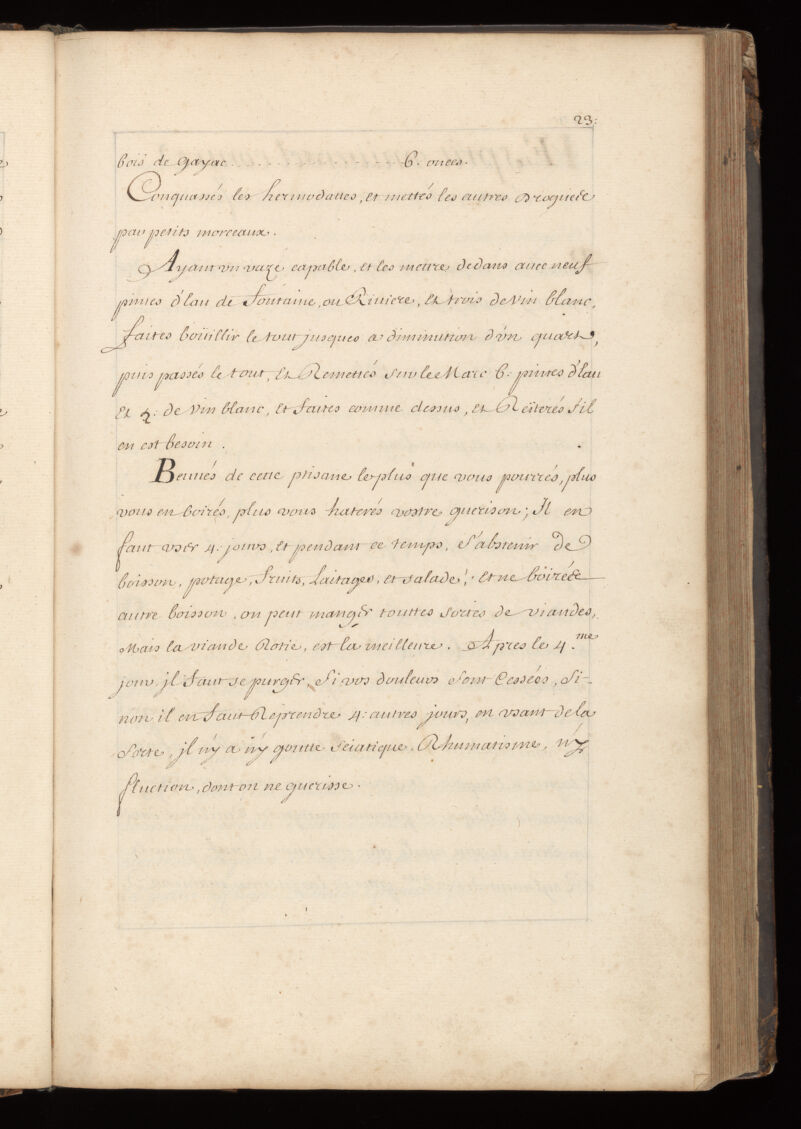 23.
bois de gayac . . . . . . . . . . . . 6. onces.
Conquassés les hermodattes, et mettés les autres Drogues
par petits morceaux.
Ayant un vaze capable, et les mettre dedans avec neuf
pintes d'Eau de Fontaine, ou Riviere, et trois de Vin blanc,
faites boüillir le tout jusques a diminution d'un quart,
puis passés le tout, et Remettés sur le Marc 6. pintes d'Eau
et 2. de Vin blanc, et faites comme dessus, et Reïterés s'il
en est besoin.
Beuués de cette ptisane le plus que vous pourrés, plus
vous en boirés, plus vous haterés vostre guerison; Il en
faut user 4. jours, et pendant ce temps, s'abstenir de
boisson, potage, Fruits, Laitages, et salade; et ne boire
autre boisson, on peut manger touttes sortes de viandes,
Mais la viande Rotie, est la meilleure. Apres le 4.me
jour, jl Faut se purger, si vos douleurs sont Cessées, Si-
non il en Faut Reprendre 4. autres jours, en usant de la
sorte, jl n'y a n'y goutte sciatique, Rhumatisme, n'y
fluction, dont on ne guerisse.